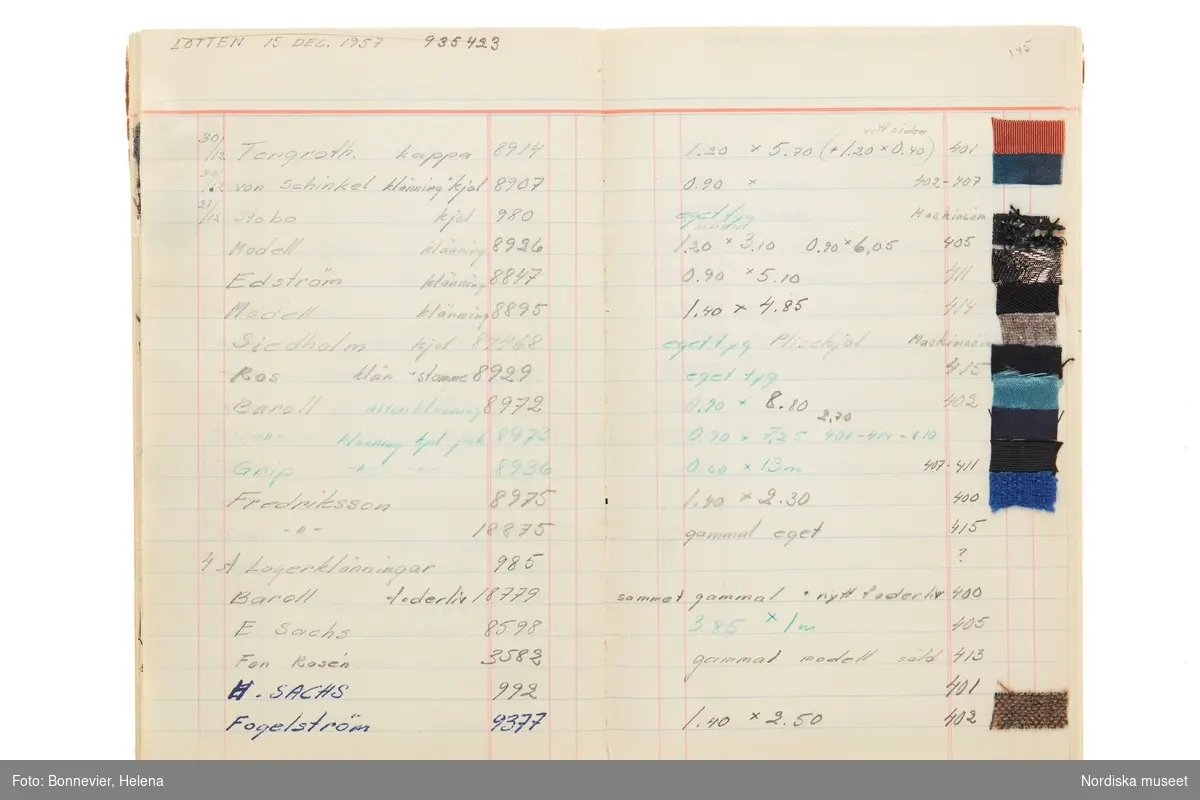 LOTTEN 15 DEC. 1957 935423 145
30/12 Tengroth. kappa 8914 1.20 × 5.70 (+1.20 × 0.40) vitt siden 401
von Schinkel klänning kjol 8907 0.90 × 402-407
Stobo kjol 980 eget tyg Maskinsöm
Modell klänning 8926 1.20 × 3.10 0.90 × 6,05 405
Edström klänning 8847 0.90 × 5.10 411
Modell klänning 8895 1.40 × 4.85 414
Siedholm kjol 8468 eget tyg Plisékjol Maskinsöm
Ros klän -stomme 8929 eget tyg 415
Baroll aftonklänning 8972 0.90 × 8.80 402
-"- klänning kjol 8973 0.90 × 7,25 2,70 401-414-410
Grip -"- -"- 8936 × 13m 407-411
Fredriksson 8975 1.40 × 2.30 400
-"- 18875 gammal eget 415
4 st Lagerklänningar 985 ?
Baroll foderliv 18779 sammet gammal + nytt foderliv 400
E Sachs 8598 3.85 × 1m 405
Fon Rosén 3582 gammal modell såld 413
H. SACHS 992 401
Fogelström 9377 1.40 × 2.50 402
Foto: Bonnevier, Helena Nordiska museet